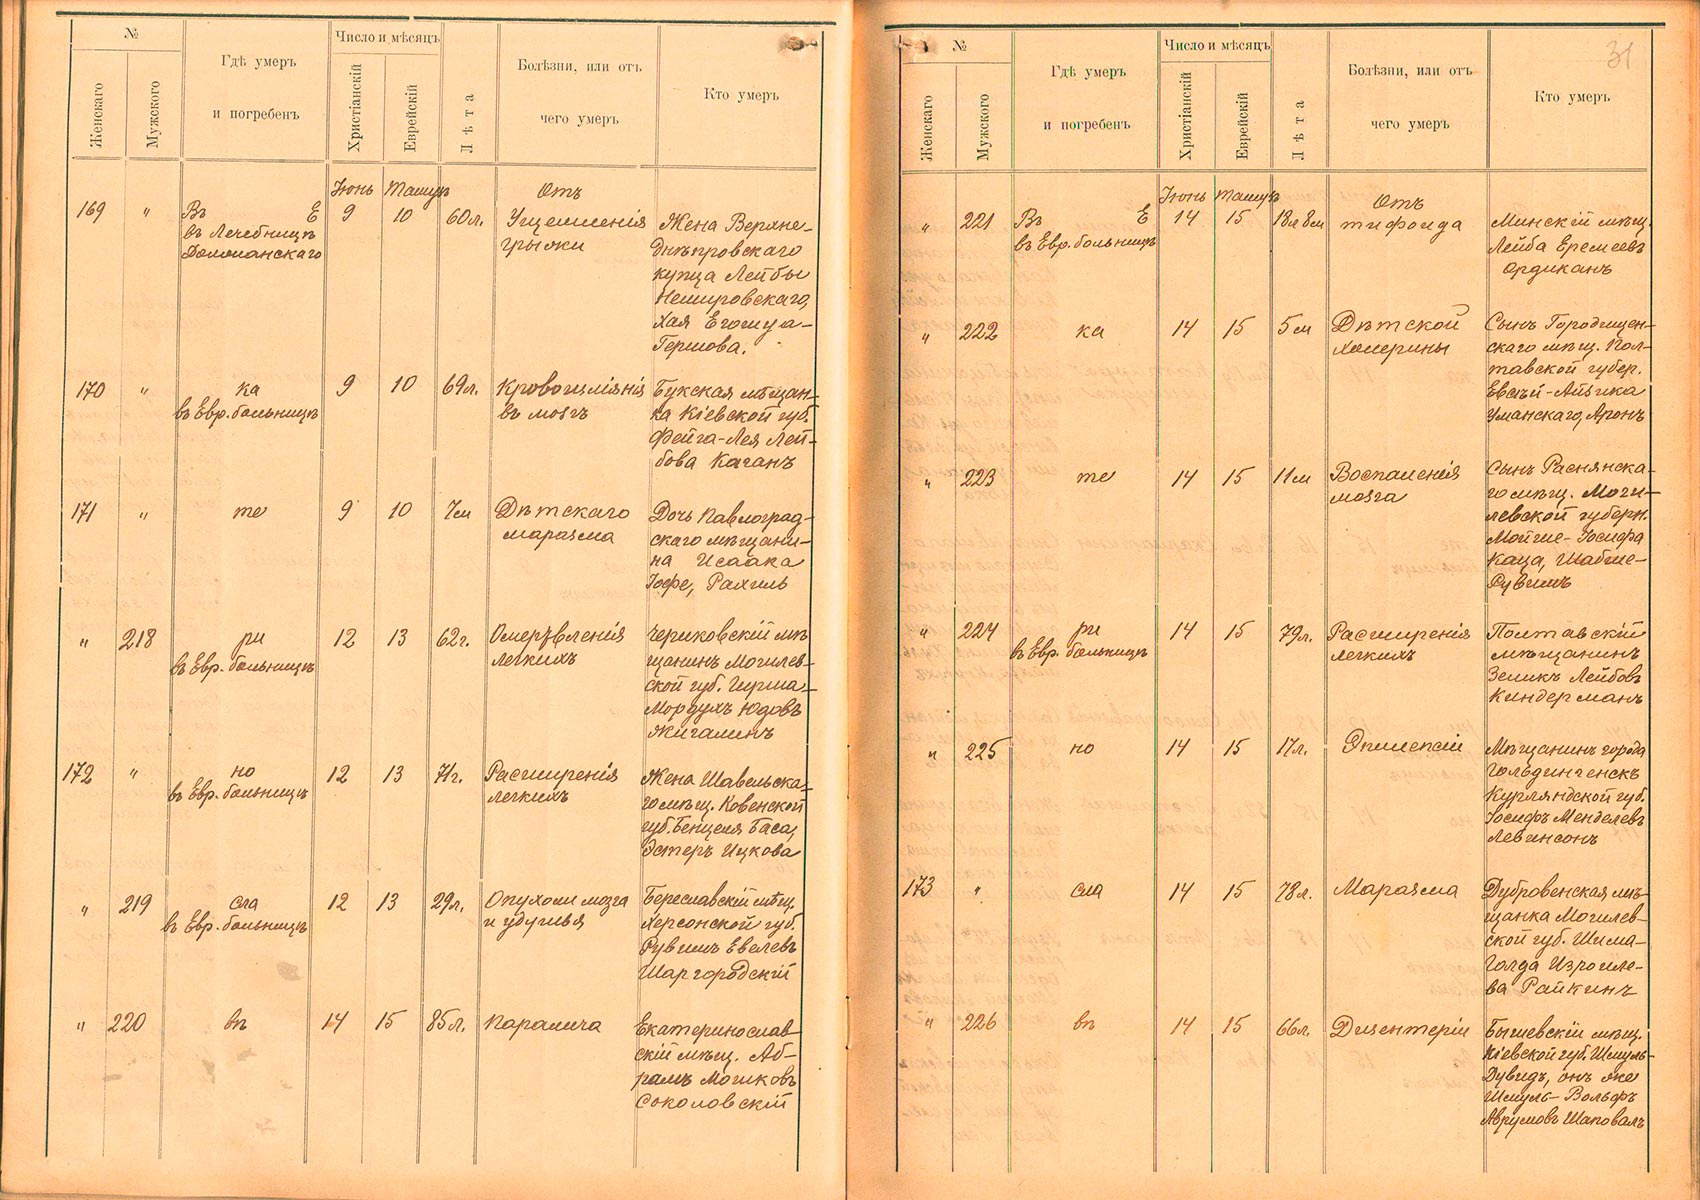 №
Женскаго
Мужского
Гдѣ умеръ
и погребенъ
Число и мѣсяцъ
Христіанскій
Еврейскій
Лѣта
Болѣзни, или отъ
чего умеръ
Кто умеръ
Іюнь Тамузъ Отъ
169 " Въ Е 9 10 60л. Ущемленія
въ Лечебницѣ грыжи
Жена Верхне-
Днѣпровскаго
купца Лейбы
Немировскаго,
Хая Егошуа-
Гершова.
170 " ка 9 10 69л. Кровоизліянія
въ Евр. больницѣ въ мозгъ
Букская мѣщан-
ка Кіевской губ.
Фейга-Лея Лей-
бова Каганъ
171 " те 9 10 7м Дѣтскаго
маразма
Дочь Павлоград-
скаго мѣщани-
на Исаака
Іофе, Рахиль
" 218 ри 12 13 62г. Омертвленія
въ Евр. больницѣ легкихъ
Чериковскій мѣ
щанинъ Могилев-
ской губ. Гирша-
Мордухъ Юдовъ
Жигалинъ
172 " но 12 13 71г. Расширенія
въ Евр. больницѣ легкихъ
Жена Шавельска-
го мѣщ. Ковенской
губ. Бенцеля Баса,
Эстеръ Ицкова
" 219 сла 12 13 29л. Опухоли мозга
въ Евр. больницѣ и удушья
Береславскій мѣщ.
Херсонской губ.
Рувимъ Евелевъ
Шаргородскій
" 220 въ 14 15 85л. Паралича
Екатеринослав-
скій мѣщ. Аб-
рамъ Мошковъ
Соколовскій
31
№
Женскаго
Мужского
Гдѣ умеръ
и погребенъ
Число и мѣсяцъ
Христіанскій
Еврейскій
Лѣта
Болѣзни, или отъ
чего умеръ
Кто умеръ
Іюнь Тамузъ Отъ
" 221 Въ Е 14 15 18л 8м тифоида
въ Евр. больницѣ
Минскій мѣщ.
Лейба Еремеевъ
Ордиканъ
" 222 ка 14 15 5м Дѣтской
холерины
Сынъ Городищен-
скаго мѣщ. Пол-
тавской губер.
Евсѣй-Айзика
Уманскаго, Аронъ
" 223 те 14 15 11м Воспаленія
мозга
Сынъ Раснянска-
го мѣщ. Моги-
левской губерн.
Мойше-Іосифа
Каца, Шабше-
Рувимъ
" 224 ри 14 15 79л. Расширенія
въ Евр. больницѣ легкихъ
Полтавскій
мѣщанинъ
Зеликъ Лейбовъ
Киндерманъ
" 225 но 14 15 17л. Эпилепсіи
Мѣщанинъ города
Гольдингенскъ
Курляндской губ.
Іосифъ Менделевъ
Левинсонъ
173 " сла 14 15 78л. Маразма
Дубровенская мѣ-
щанка Могилев-
ской губ. Шима-
Голда Изроиле-
ва Райкинъ
" 226 въ 14 15 66л. Дизентеріи
Бышевскій мѣщ.
Кіевской губ. Шмуль-
Дувидъ, онъ же
Шмуль-Вольфъ
Аврумовъ Шаповалъ